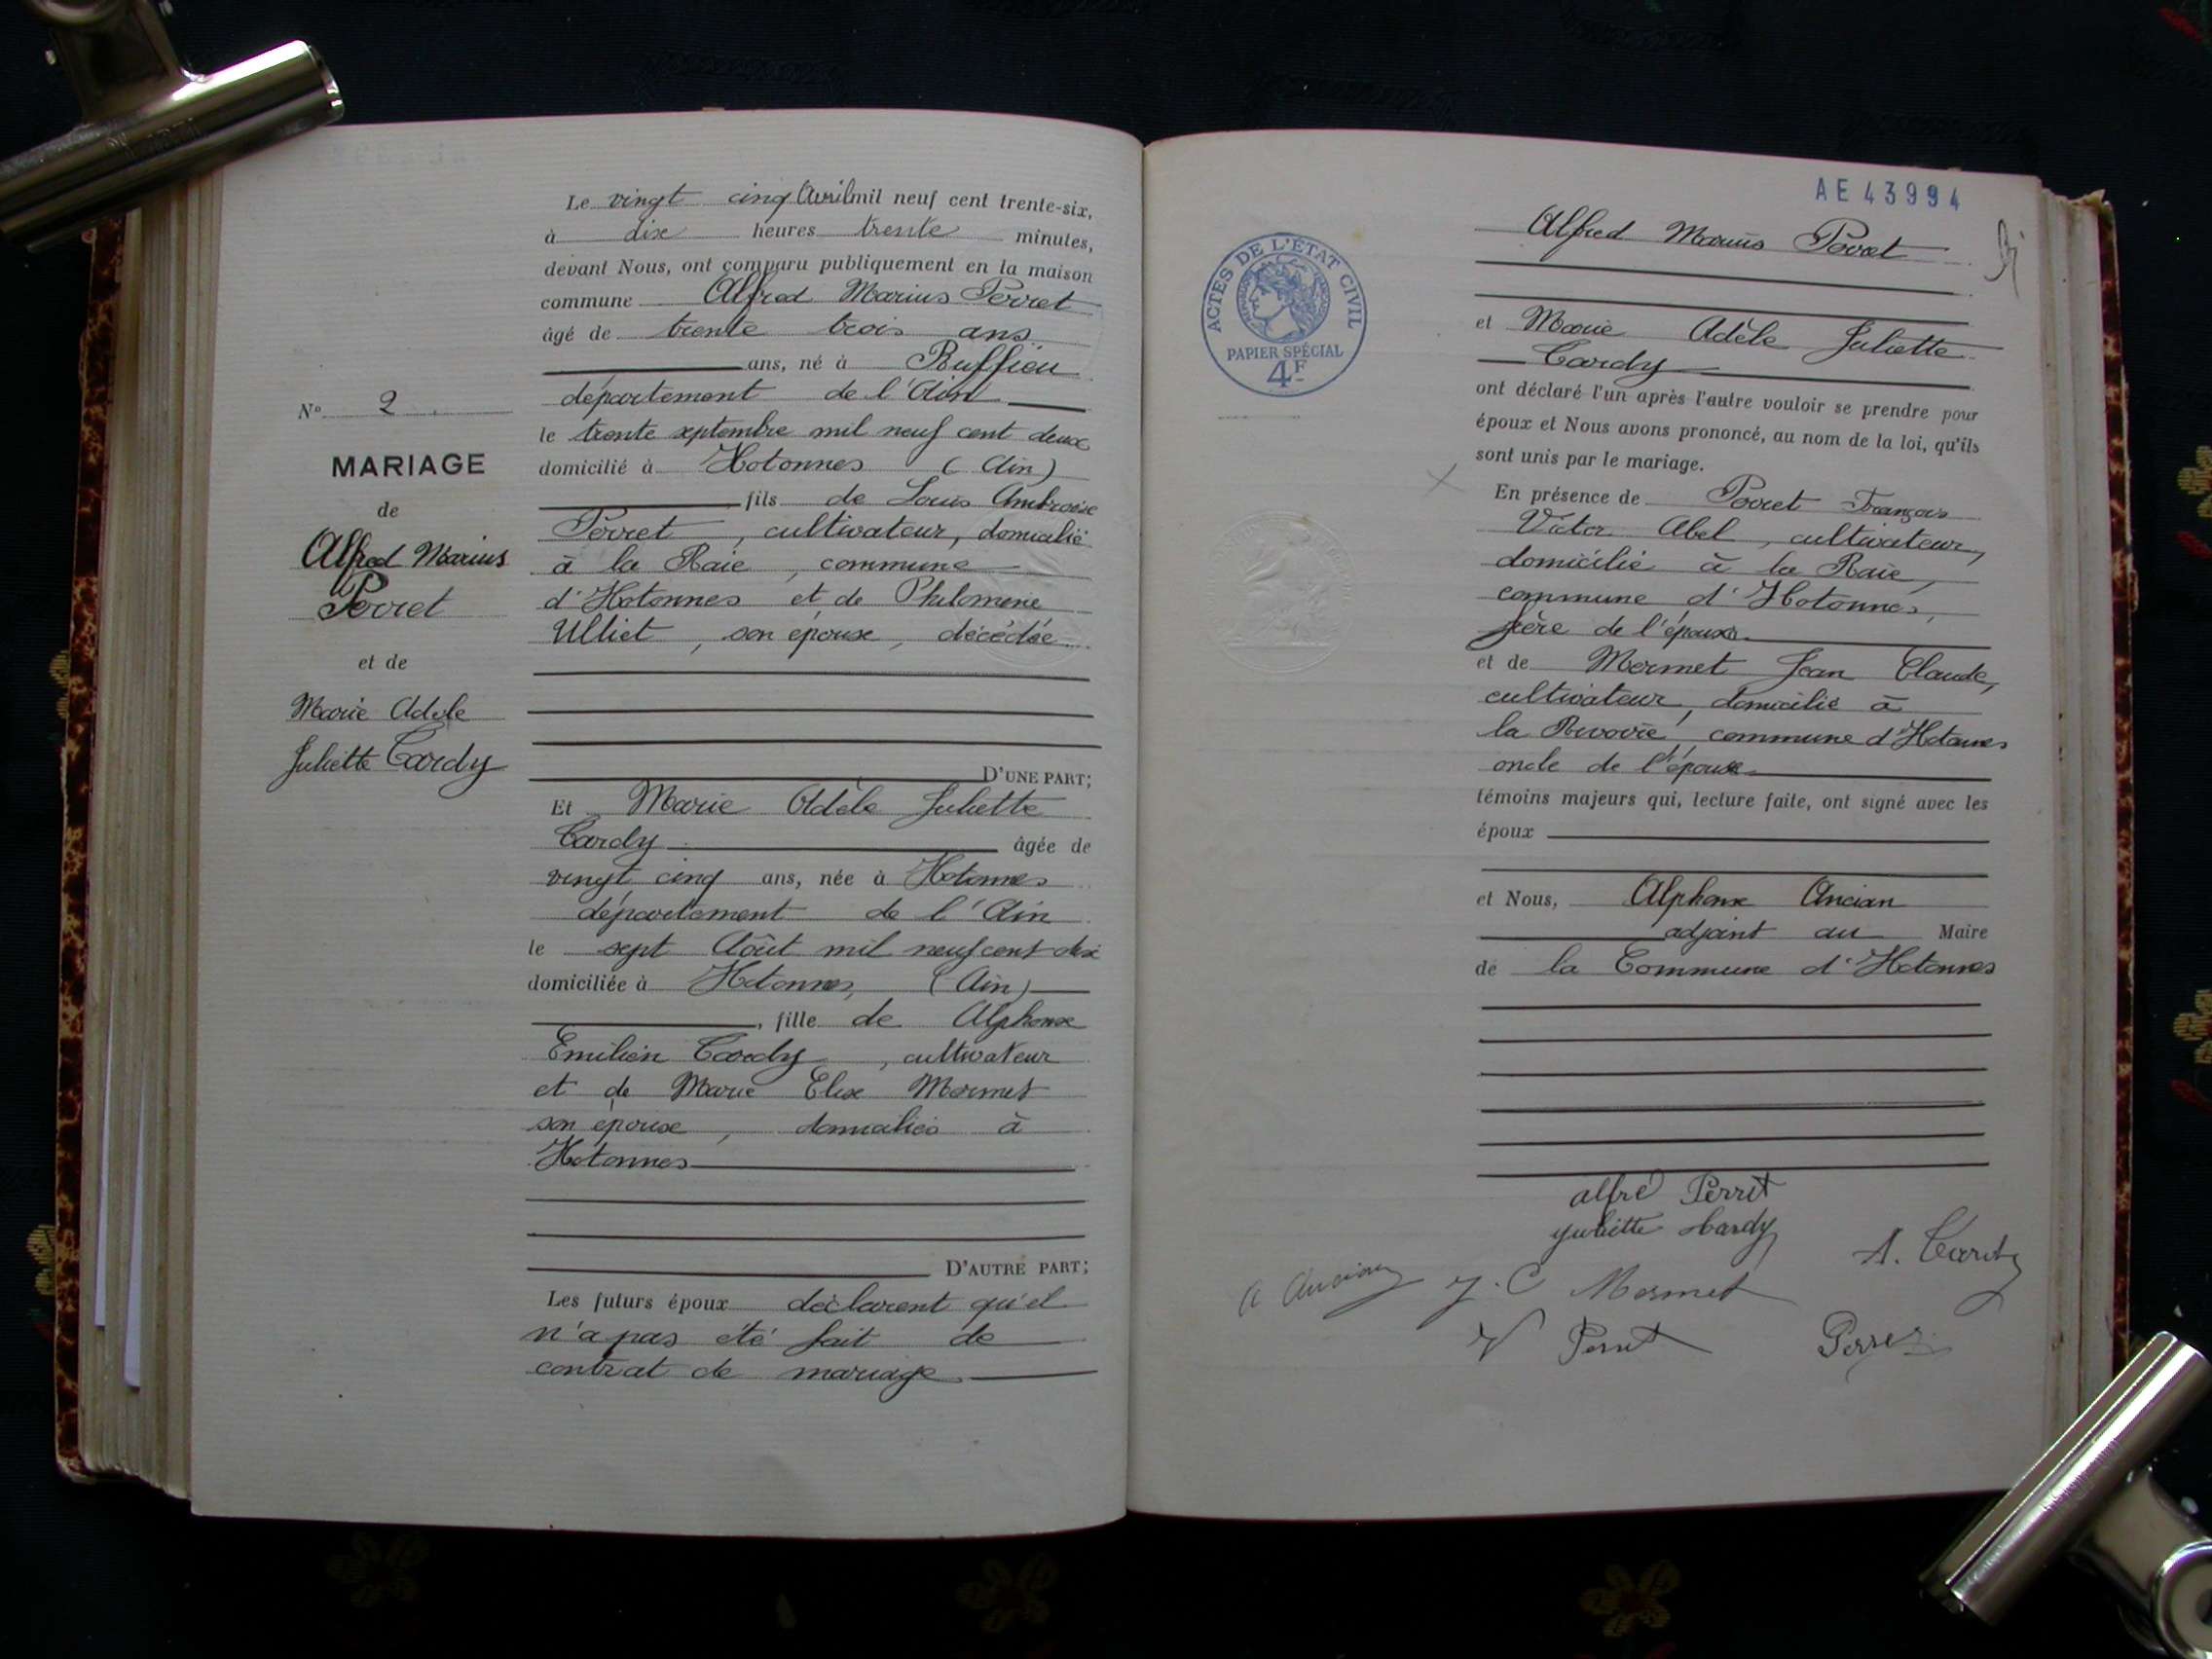 Le vingt cinq Avril mil neuf cent trente-six,
à dix heures trente minutes,
devant Nous, ont comparu publiquement en la maison
commune Alfred Marius Perret
âgé de trente trois ans
ans, né à Ruffieu
département de l'Ain
le trente septembre mil neuf cent deux
domicilié à Hotonnes (Ain)
fils de Louis Ambroise
Perret, cultivateur, domicilié
à la Raie, commune
d'Hotonnes et de Philomène
Ulliet, son épouse, décédée
D'UNE PART;
Et Marie Adèle Juliette
Cardy âgée de
vingt cinq ans, née à Hotonnes
département de l'Ain
le sept Août mil neuf cent dix
domiciliée à Hotonnes, (Ain)
, fille de Alphonse
Emilien Cardy, cultivateur
et de Marie Elise Mermet
son épouse, domiciliés à
Hotonnes
D'AUTRE PART;
Les futurs époux déclarent qu'il
n'a pas été fait de
contrat de mariage
No 2
MARIAGE
de
Alfred Marius
Perret
et de
Marie Adèle
Juliette Cardy
AE43994
ACTES DE L'ÉTAT CIVIL
PAPIER SPÉCIAL
4F
Alfred Marius Perret
et Marie Adèle Juliette
Cardy
ont déclaré l'un après l'autre vouloir se prendre pour
époux et Nous avons prononcé, au nom de la loi, qu'ils
sont unis par le mariage.
En présence de Perret François
Victor Abel, cultivateur,
domicilié à la Raie,
commune d'Hotonnes,
frère de l'époux
et de Mermet Jean Claude,
cultivateur, domicilié à
la Rivoire, commune d'Hotonnes
oncle de l'épouse
témoins majeurs qui, lecture faite, ont signé avec les
époux
et Nous, Alphonse Ancian
adjoint au Maire
de la Commune d'Hotonnes
alfré Perret
Juliette Cardy
A. Cardy
A Ancian J. C Mermet
V Perret Perret